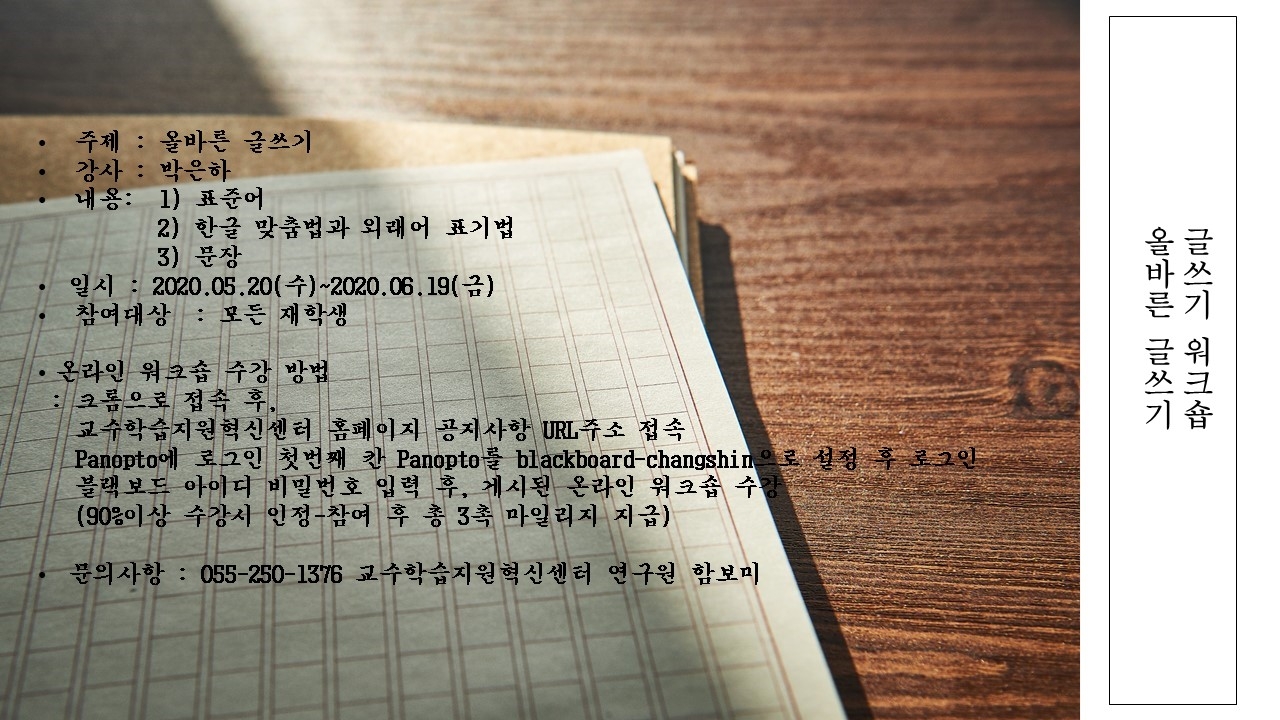 • 주제 : 올바른 글쓰기
• 강사 : 박은하
• 내용: 1) 표준어
2) 한글 맞춤법과 외래어 표기법
3) 문장
• 일시 : 2020.05.20(수)~2020.06.19(금)
• 참여대상 : 모든 재학생
• 온라인 워크숍 수강 방법
: 크롬으로 접속 후,
교수학습지원혁신센터 홈페이지 공지사항 URL주소 접속
Panopto에 로그인 첫번째 칸 Panopto를 blackboard-changshin으로 설정 후 로그인
블랙보드 아이디 비밀번호 입력 후, 게시된 온라인 워크숍 수강
(90%이상 수강시 인정-참여 후 총 3촉 마일리지 지급)
• 문의사항 : 055-250-1376 교수학습지원혁신센터 연구원 함보미
글쓰기 워크숍
올바른 글쓰기